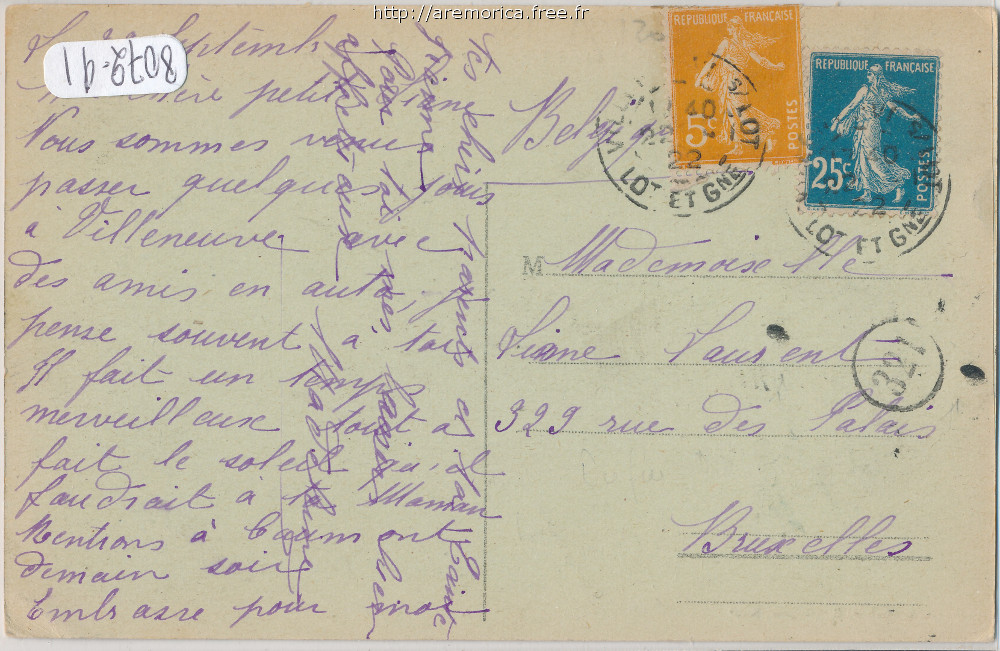 http://aremorica.free.fr
8072-91
Septembre
petite Liane
Nous sommes venus
passer quelques jours
à Villeneuve avec
des amis en auto, je
pense souvent à toi
Il fait un temps
merveilleux tout à
fait le soleil qu'il
faudrait à ta Maman
Rentrons à Caumont
demain soir
Embrasse pour moi
tes chéris parents et ta
Pour toi mes
Belgique
REPUBLIQUE FRANÇAISE
5c
POSTES
REPUBLIQUE FRANÇAISE
25c
POSTES
LOT
22
LOT ET GNE
LOT ET GNE
M
Mademoiselle
Liane Laurent
329 rue des Palais
Bruxelles
321